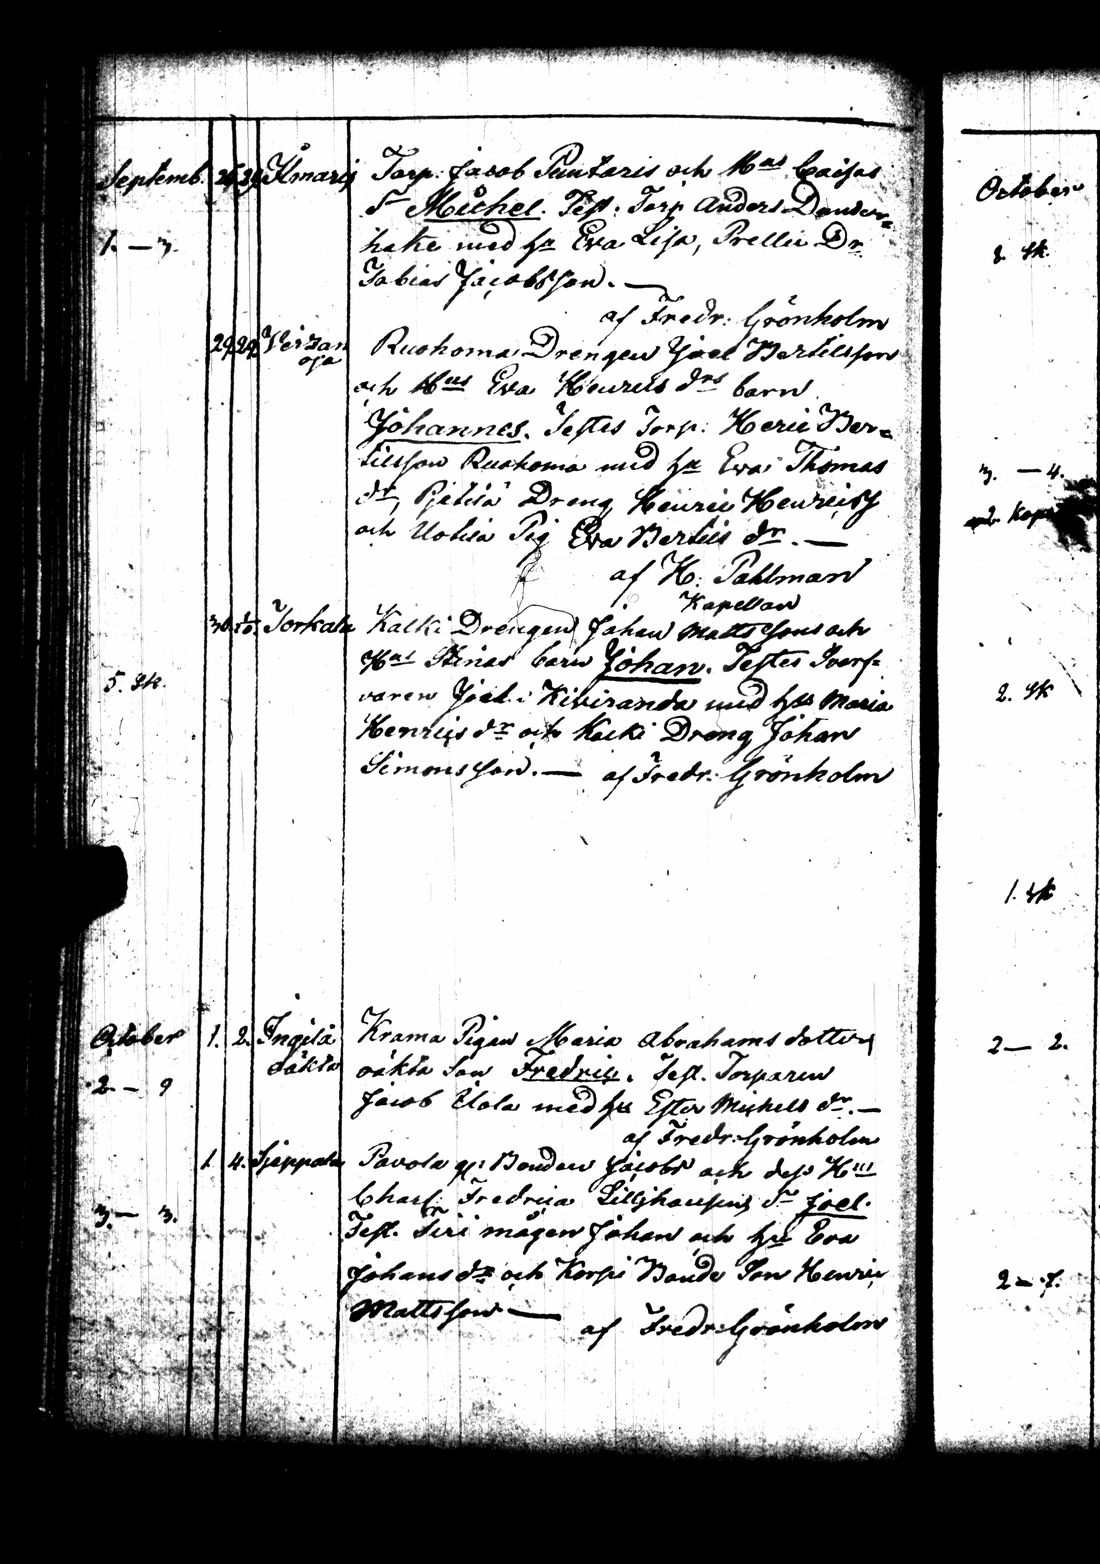 Septemb. 26. 29. Ilmarij Torp. Jacob Puntaris och H:us Caisas
S: Michel. Test: Torp. Anders Dander=
1. — 3. hake med hu Eva Lisa, Prellu Dr
Tobias Jacobsson. —
af Fredr: Grönholm
29. 29. Veisan Ruohoma Drengen Joel Bertilsson
oja
och H:us Eva Henrics d:rs barn
Johannes. Testes Torp: Henric Ber=
tilsson Ruohoma med hu Eva Thomas
d:r, Dreng Henric Henricss
och Uotila Pig Eva Bertils d:r. —
af H. Pahlman
Kapellan
30. Torkala Kalki Drengen Johan Mattssons och
H:us Stinas barn Johan. Testes
5. Sk. varen Joel Kiviranda med hu Maria
Henrics d:r och Kalki Dreng Johan
Simonsson. — af Fredr: Grönholm
October 1. 2. Ingilä Krama Pigan Maria Abrahams dotters
oäkta oäkta Son Fredric. Test. Torparen
2 — 9 Jacob Uola med hu Ester Michels d:r. —
af Fredr: Grönholm
1. 4. Sjeppala Pavola Bonden Jacobs och dess H:us
Charl: Fredrica S: Joel.
3. — 3. Test. Siri mågen Johan och hu Eva
Johans d:r och Korpi Bonde Son Henric
Mattsson —
af Fredr: Grönholm
October
2. Sk.
3. — 4.
2. Sk
1. Sk
2 — 2.
2 — 7.